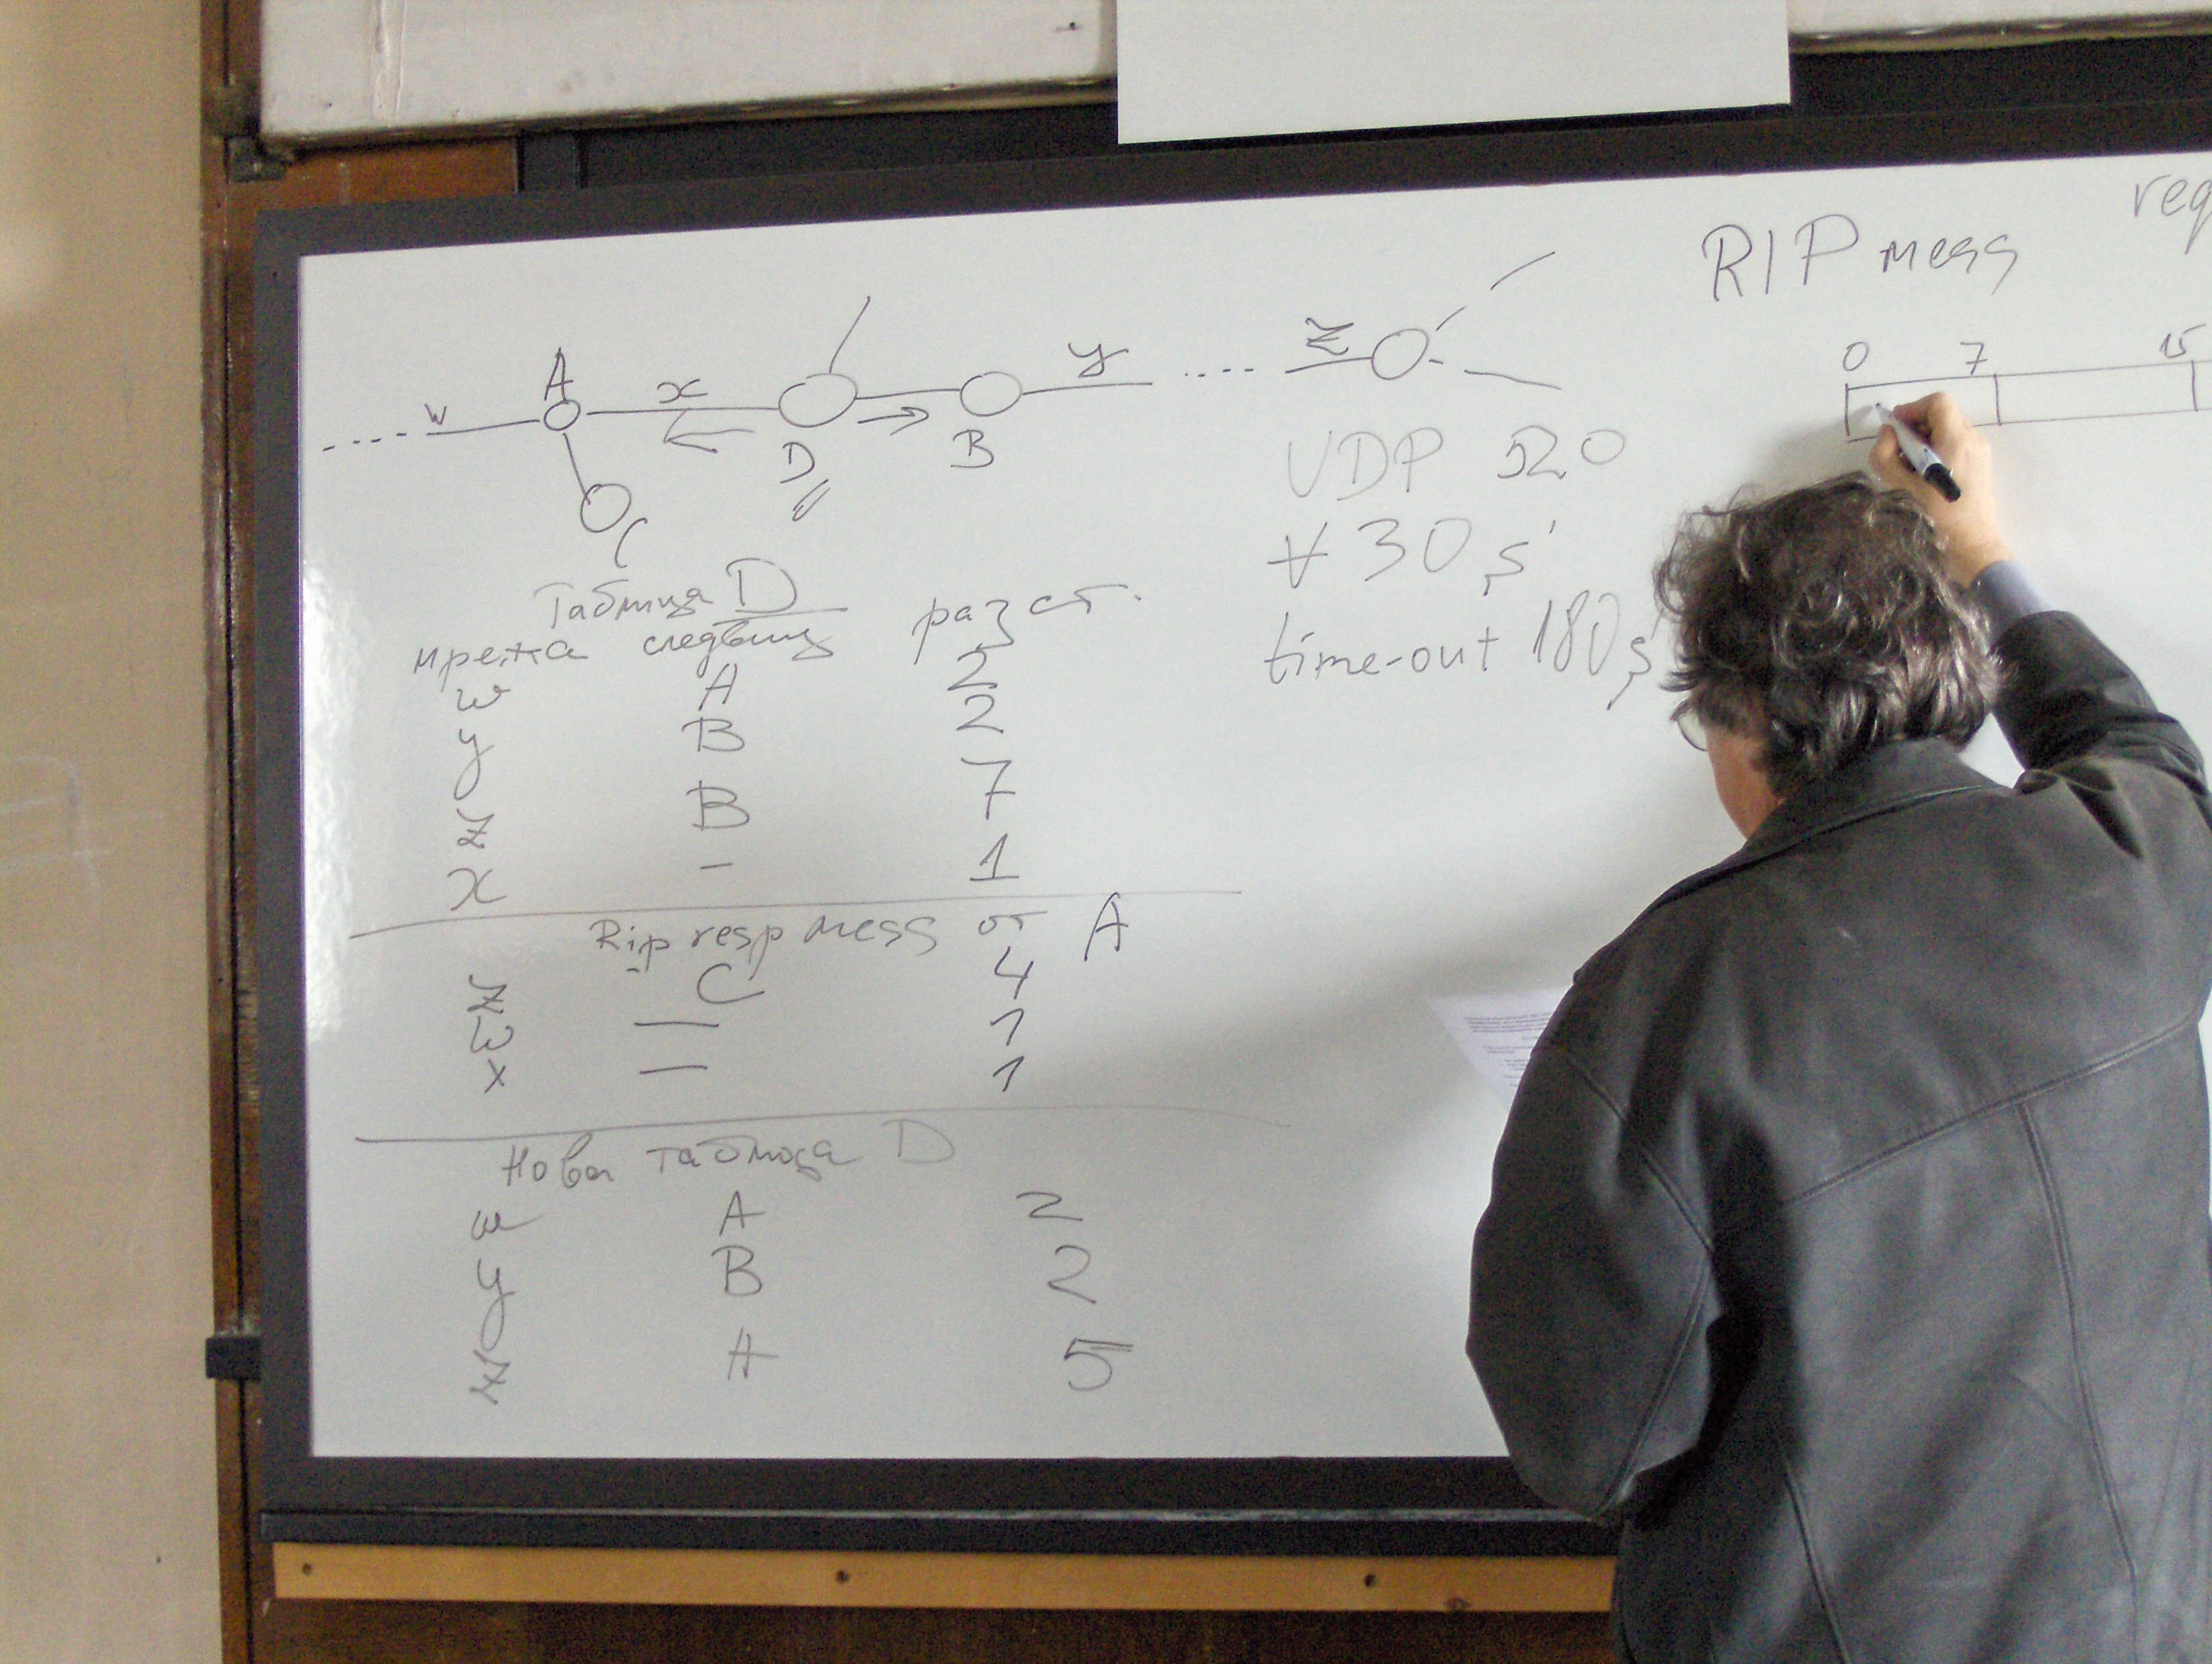 RIP mess req
0 7 15
A
w x y z
D B
C
UDP 520
∀ 30 s
time-out 180 s
Таблица D
мрежа следващ разст.
w A 2
y B 2
z B 7
x - 1
Rip resp mess от A
z C 4
w — 1
x — 1
Нова таблица D
w A 2
y B 2
z A 5